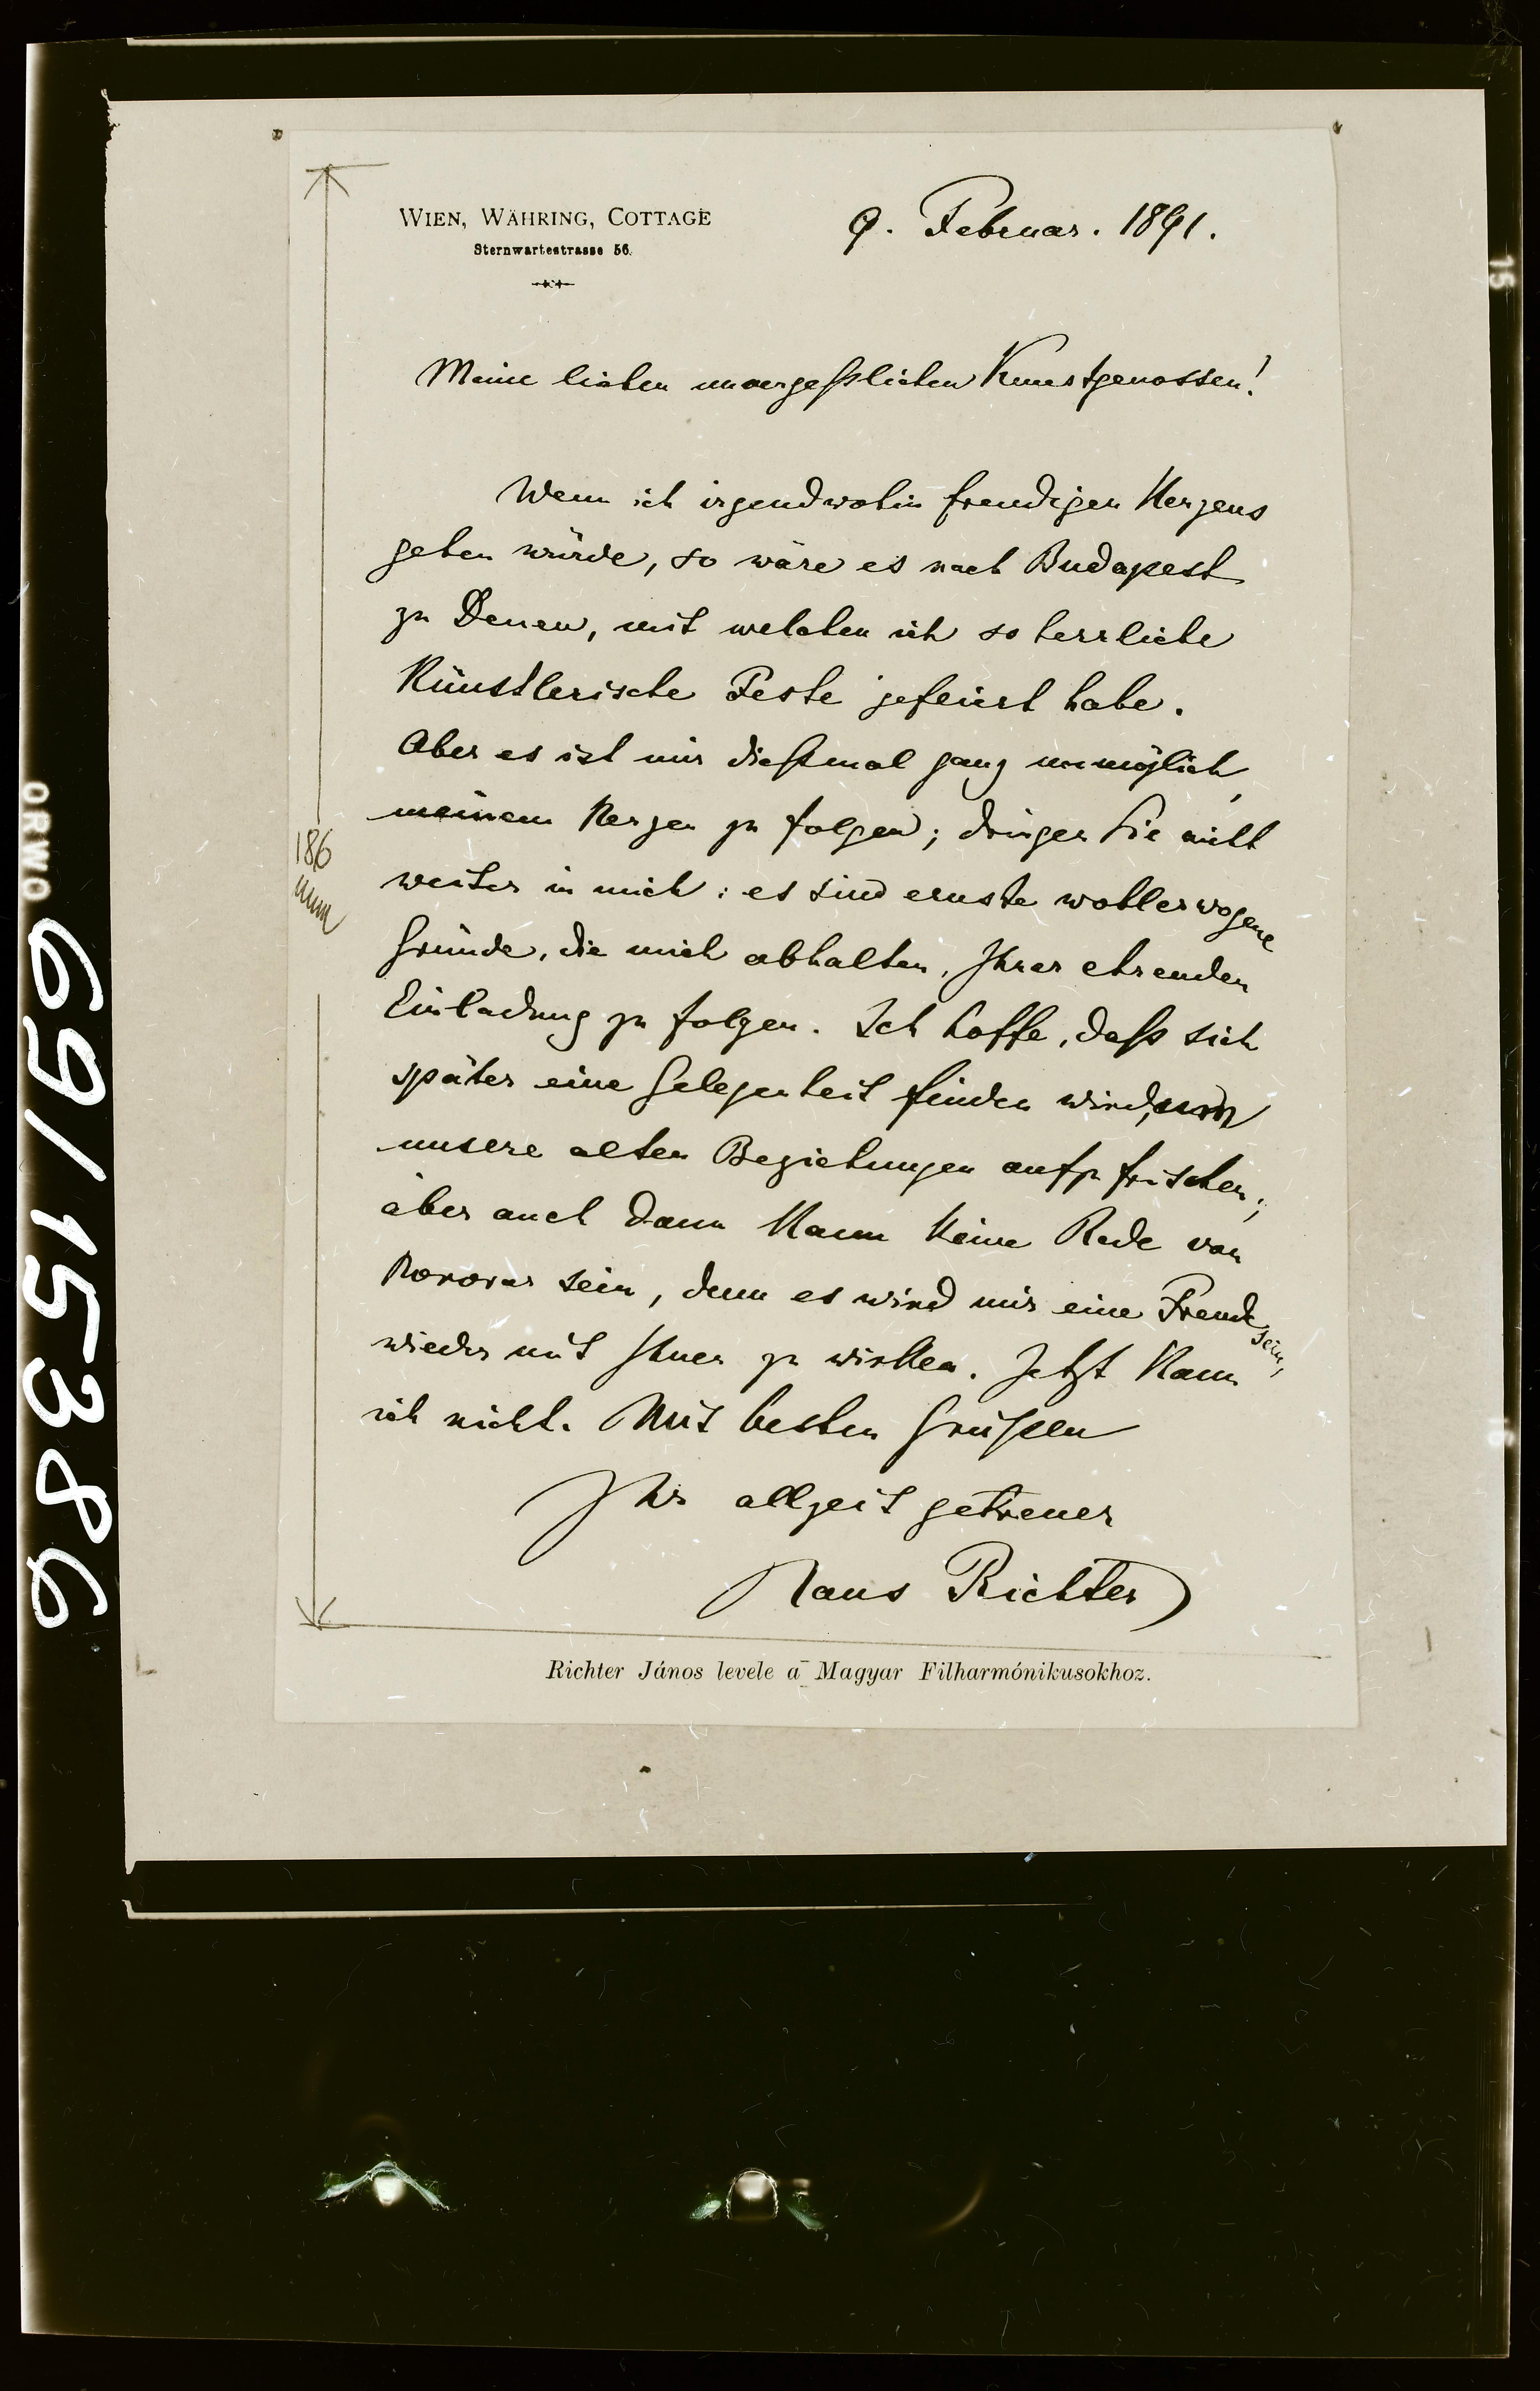 WIEN, WÄHRING, COTTAGE
Sternwartestrasse 56.
9. Februar. 1891.
Meine lieben unvergeßlichen Kunstgenossen!
Wenn ich irgendwohin freudigen Herzens
gehen würde, so wäre es nach Budapest
zu Denen, mit welchen ich so herrliche
Künstlerische Feste gefeiert habe.
Aber es ist mir dießmal ganz unmöglich,
meinem Herzen zu folgen; dringen Sie nicht
weiter in mich: es sind ernste wohlerwogene
Gründe, die mich abhalten, Ihrer ehrenden
Einladung zu folgen. Ich hoffe, daß sich
später eine Gelegenheit finden wird, um
unsere alten Beziehungen aufzufrischen;
aber auch dann Kann Keine Rede von
Honorar sein, denn es wird mir eine Freude sein,
wieder mit Ihnen zu wirken. Jetzt Kann
ich nicht. Mit besten Grüßen
Ihr allzeit getreuer
Hans Richter
Richter János levele a Magyar Filharmónikusokhoz.
186
mm
ORWO
69/15386
15
16